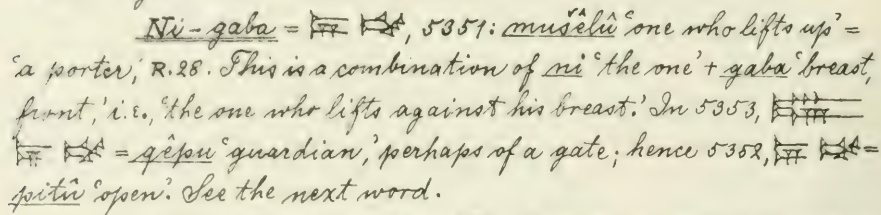 Ni-gaba = , 5351: mušêlû ‘one who lifts up’ =
‘a porter,’ R.28. This is a combination of ni ‘the one’ + gaba ‘breast,
front,’ i.e., ‘the one who lifts against his breast.’ In 5353,
= qêpu ‘guardian,’ perhaps of a gate; hence 5352, =
pitû ‘open’. See the next word.